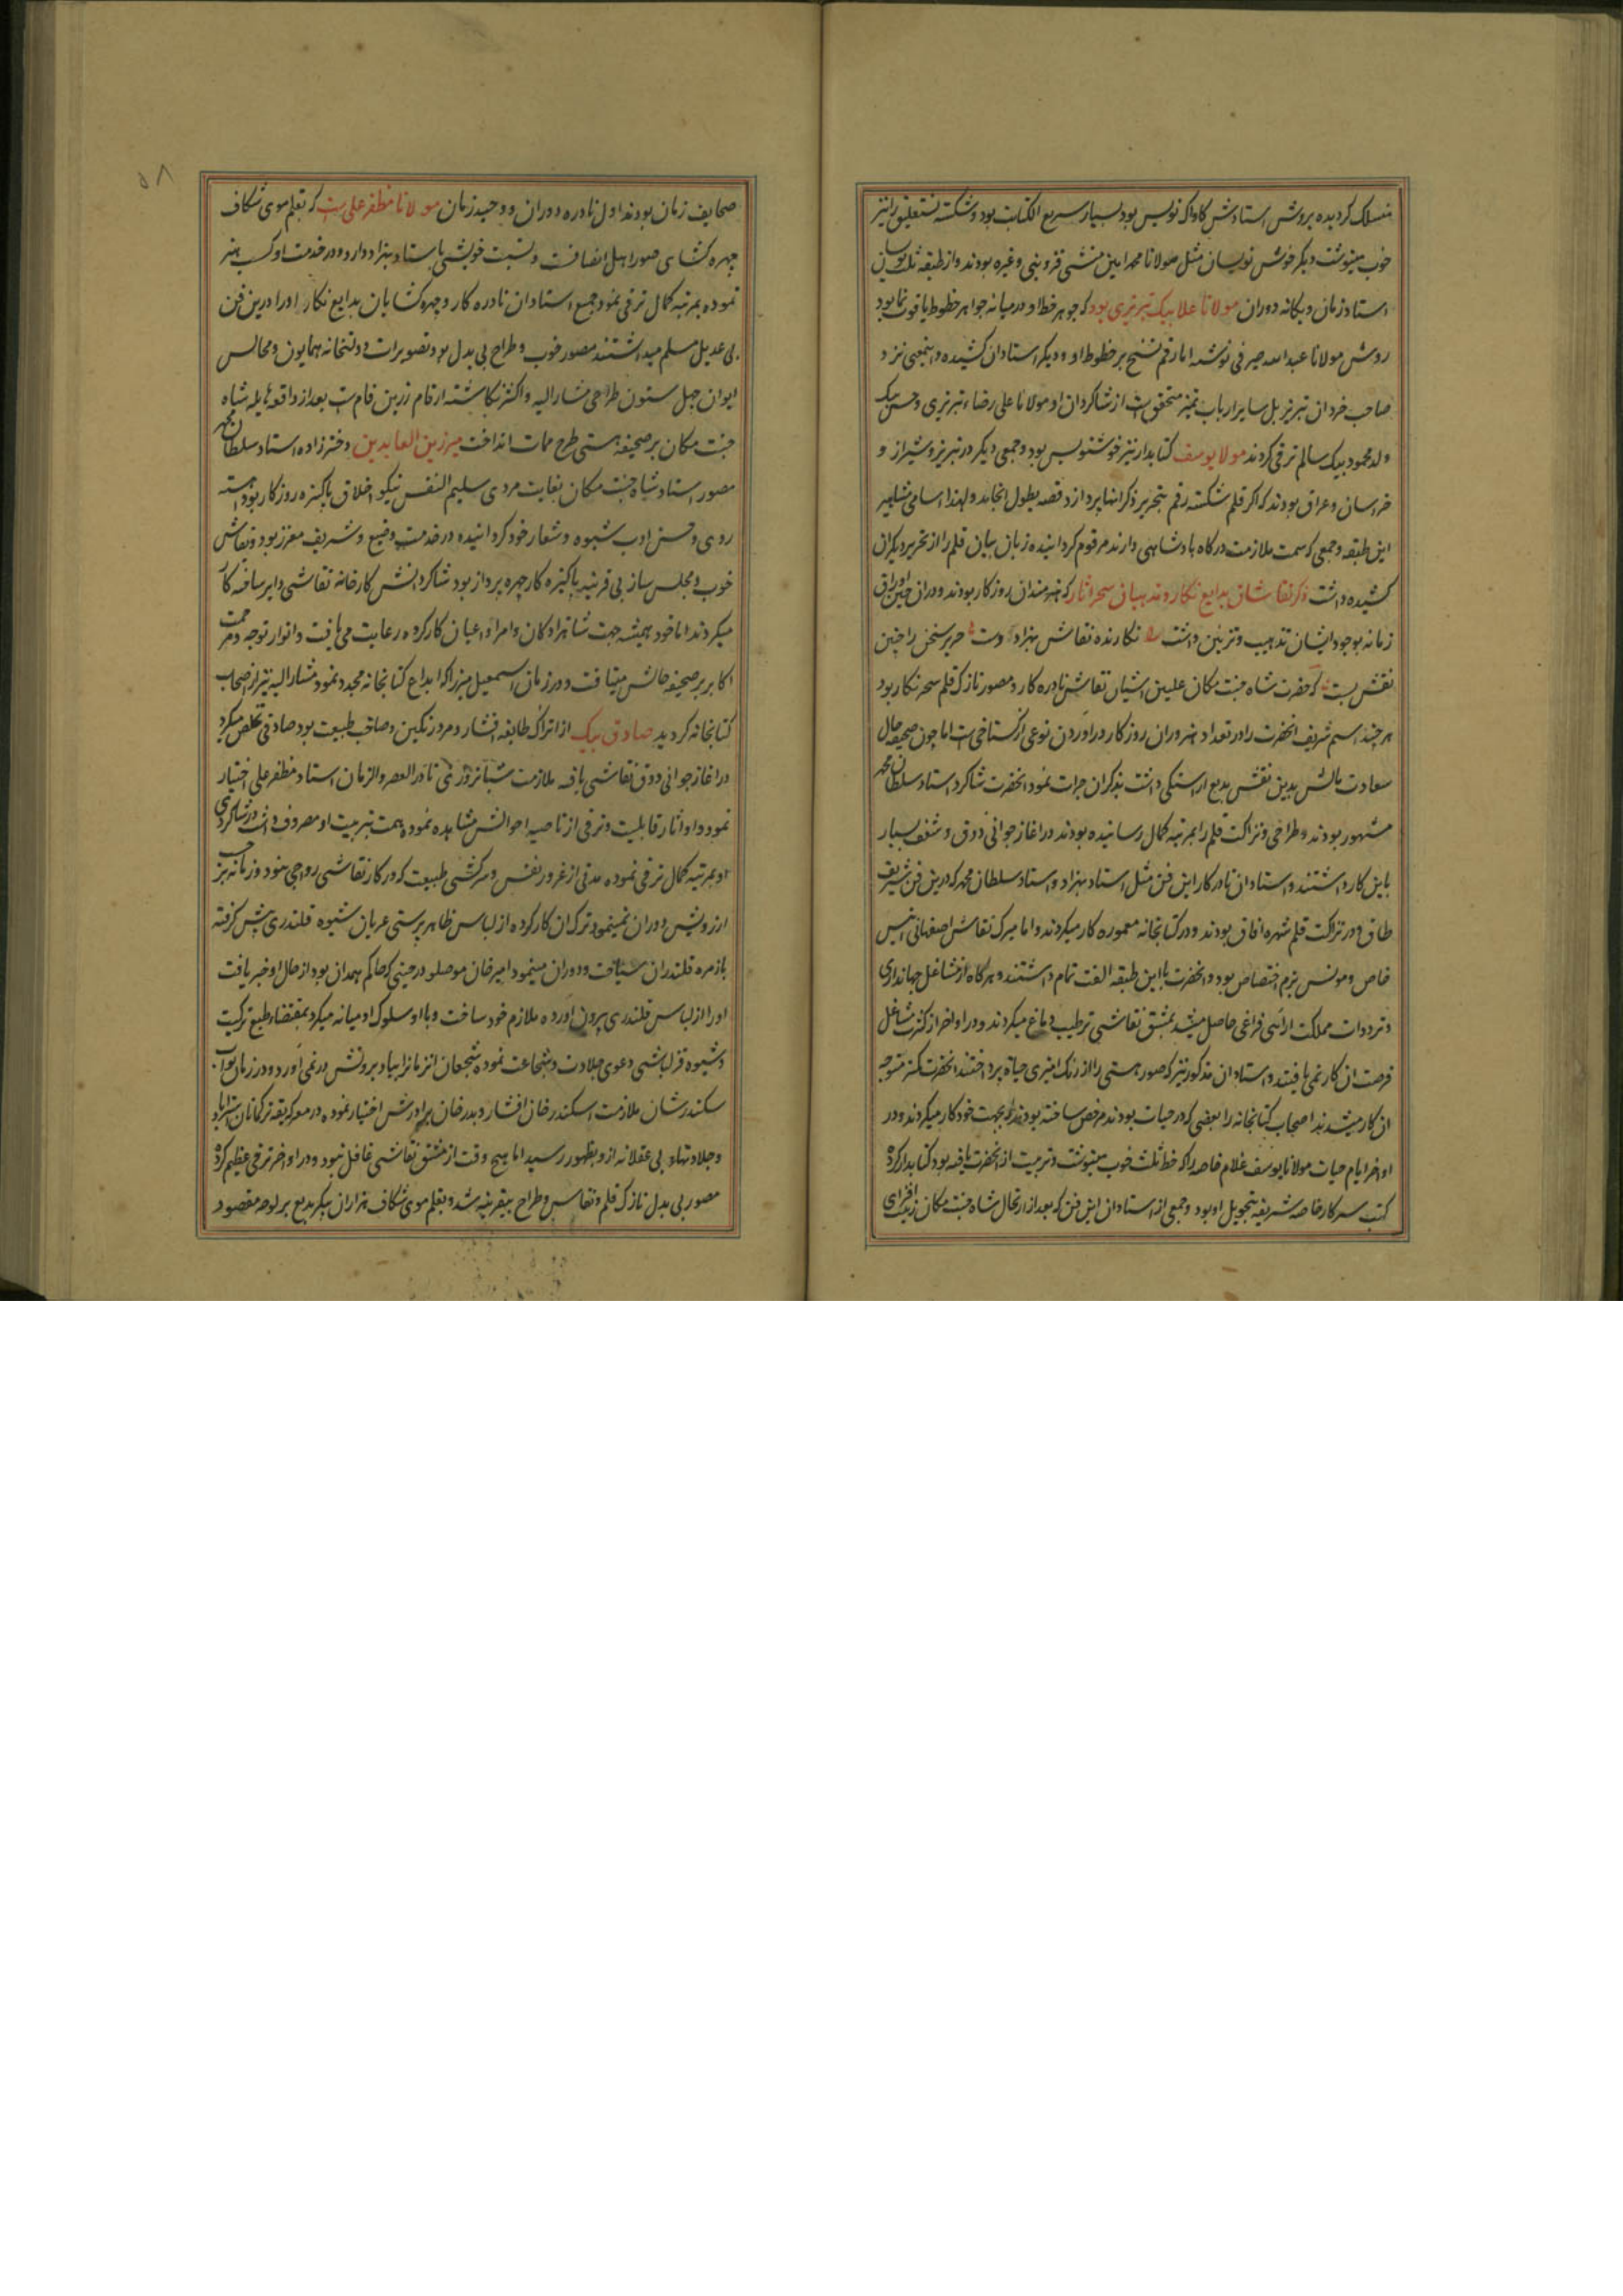 منسلک کردیده بروش استادش کاواک نویس بود بسیار سریع الکتابت بود و شکسته نستعلیق را نیز
خوب مینوشت دیکر خوش نویسان مثل مولانا محمد امین منشی قزوینی و غیره بودند و از طبقه ثلث نویسان
استاد زمان و یکانه دوران مولانا علا بیک تبریزی بود که جوهر خط او در میانه جواهر خطوط یاقوت نما بود
روش مولانا عبد الله صیرفی نوشته اما رقم نسخ بر خطوط او و دیکر استادان کشیده و اینمعنی نزد
صاحب خردان تبریز بل سایر ارباب تمیز متحقق است از شاکردان او مولانا علی رضاء تبریزی و حسن بیک
ولد محمود بیک سالم ترقی کردند مولا یوسف کتابدار نیز خوشنویس بود و جمعی دیکر در تبریز و شیراز و
خراسان و عراق بودند که اکر قلم شکسته رقم بتحریر ذکر انها پردازد قصه بطول انجامد ولهذا اسامی مشاهیر
این طبقه و جمعی که سمت ملازمت درکاه پادشاهی دارند مرقوم کردانیده زبان بیان قلم را از تحریر دیکران
کشیده داشت ذکر نقاشان بدایع نکار و مذهبان سحر اثار که هنرمندان روزکار بودند و دران حین اوراق
زمانه بوجود ایشان تذهیب و تزیین داشت نکارنده نقاش بهزاد دست حریر سخن را چنین
نقش بست که حضرت شاه جنت مکان علیین اشیان نقاش نادره کار و مصور نازک قلم سحر نکار بود
هر چند اسم شریف انحضرت را در تعداد هنروران روزکار در اوردن نوعی از کستاخی است اما چون صحیفه حال
سعادت مالش بدین نقش بدیع اراستکی داشت بذکر ان جرات نمود انحضرت شاکرد استاد سلطان محمد
مشهور بودند و طراحی و نزاکت قلم را بمرتبه کمال رسانیده بودند در اغاز جوانی ذوق و شعف بسیار
باین کار داشتند و استادان نادر کار این فن مثل استاد بهزاد و استاد سلطان محمد که درین فن شریف
طاق و در نزاکت قلم شهره افاق بودند و در کتابخانه معموره کار میکردند و اما میرک نقاش اصفهانی انیس
خاص و مونس بزم اختصاص بود و انحضرت با این طبقه الفت تمام داشتند و هر کاه از مشاغل جهانداری
و ترددات مملکت ارائی فراغی حاصل میشد بمشق نقاشی ترطیب دماغ میکردند و در اواخر از کثرت مشاغل
فرصت ان کار نمی یافتند و استادان مذکور نیز که صور هستی را از رنک امیزی حیات پرداختند انحضرت کمتر متوجه
ان کار میشدند اصحاب کتابخانه را بعضی که در حیات بودند مرخص ساخته بودند که بجهت خود کار میکردند و در
اواخر ایام حیات مولانا یوسف غلام خاصه را که خط ثلث خوب مینوشت و تربیت از انحضرت یافته بود کتابدار کرده
کتب سرکار خاصه شریفه بتحویل او بود و جمعی از استادان این فن که بعد از ارتحال شاه جنت مکان زینت افزای
۵۸
صحایف زمان بودند اول نادره دوران و وحید زمان مولانا مظفر علی است که بقلم موی شکاف
چهره کشای صور اهل انصافست و نسبت خویشی باستاد بهزاد دارد و در خدمت او کسب هنر
نموده بمرتبه کمال ترقی نمود جمیع استادان نادره کار و چهره کشایان بدایع نکار او را درین فن
بی عدیل مسلم میداشتند مصور خوب و طراح بی بدل بود تصویرات دولتخانه همایون و مجالس
ایوان چهل ستون طراحی مشار الیه و اکثر نکاشته ارقام زرین فام است بعد از واقعه هایله شاه
جنت مکان بر صحیفه هستی طرح ممات انداخت میر زین العابدین دختر زاده استاد سلطان محمد
مصور استاد شاه جنت مکان بغایت مردی سلیم النفس نیکو اخلاق پاکیزه روزکار بود
روی و حسن ادب شیوه و شعار خود کردانیده در خدمت وضیع و شریف معزز بود و نقاش
خوب و مجلس ساز بی قرینه پاکیزه کار چهره پرداز بود شاکردانش کارخانه نقاشی دایر ساخته کار
میکردند اما خود همیشه جهت شاهزادکان و امرا و اعیان کار کرده رعایت می یافت و انوار توجه و مرحمت
اکابر بر صحیفه حالش میتافت و در زمان اسمعیل میرزا که ابداع کتابخانه مجدد نمود مشار الیه نیز از اصحاب
کتابخانه کردید صادق بیک از اتراک طایفه افشار و مرد رنکین و صاحب طبیعت بود صادقی تخلص میکرد
در اغاز جوانی ذوق نقاشی یافته ملازمت شبانروزی نادر العصر والزمان استاد مظفر علی اختیار
نمود و او اثار قابلیت و ترقی از ناصیه احوالش مشاهده نموده همت بتربیت او مصروف داشت و در شاکردی
او بمرتبه کمال ترقی نموده مدتی از غرور نفس و سرکشی طبیعت که در کار نقاشی رواجی نبود و زمانه بر حسب
ارزویش دوران نمینمود ترک ان کار کرده از لباس ظاهر پرستی عریان شیوه قلندری پیش کرفته
با زمره قلندران سیاحت و دوران مینمود امیر خان موصلو در حینی که حاکم همدان بود از حال او خبر یافت
او را از لباس قلندری بیرون اورده ملازم خود ساخت و با او سلوک ادمیانه میکرد بمقتضاء طبع ترکیت
و شیوه قزلباشی دعوی جلادت و شجاعت نموده شجعان انزمان را بباد بروتش در نمی اورد و در زمان نواب
سکندر شان ملازمت اسکندر خان افشار و بدر خان برادرش اختیار نموده در معرکه یقه ترکمانان استراباد
و جلادتهاء بی عقلانه ازو بظهور رسید اما هیچ وقت از مشق نقاشی غافل نبود و در اواخر ترقی عظیم کرده
مصور بی بدل نازک قلم و نقاس و طراح بیقرینه شد و بقلم موی شکاف هزاران پیکر بدیع بر لوحه مقصود